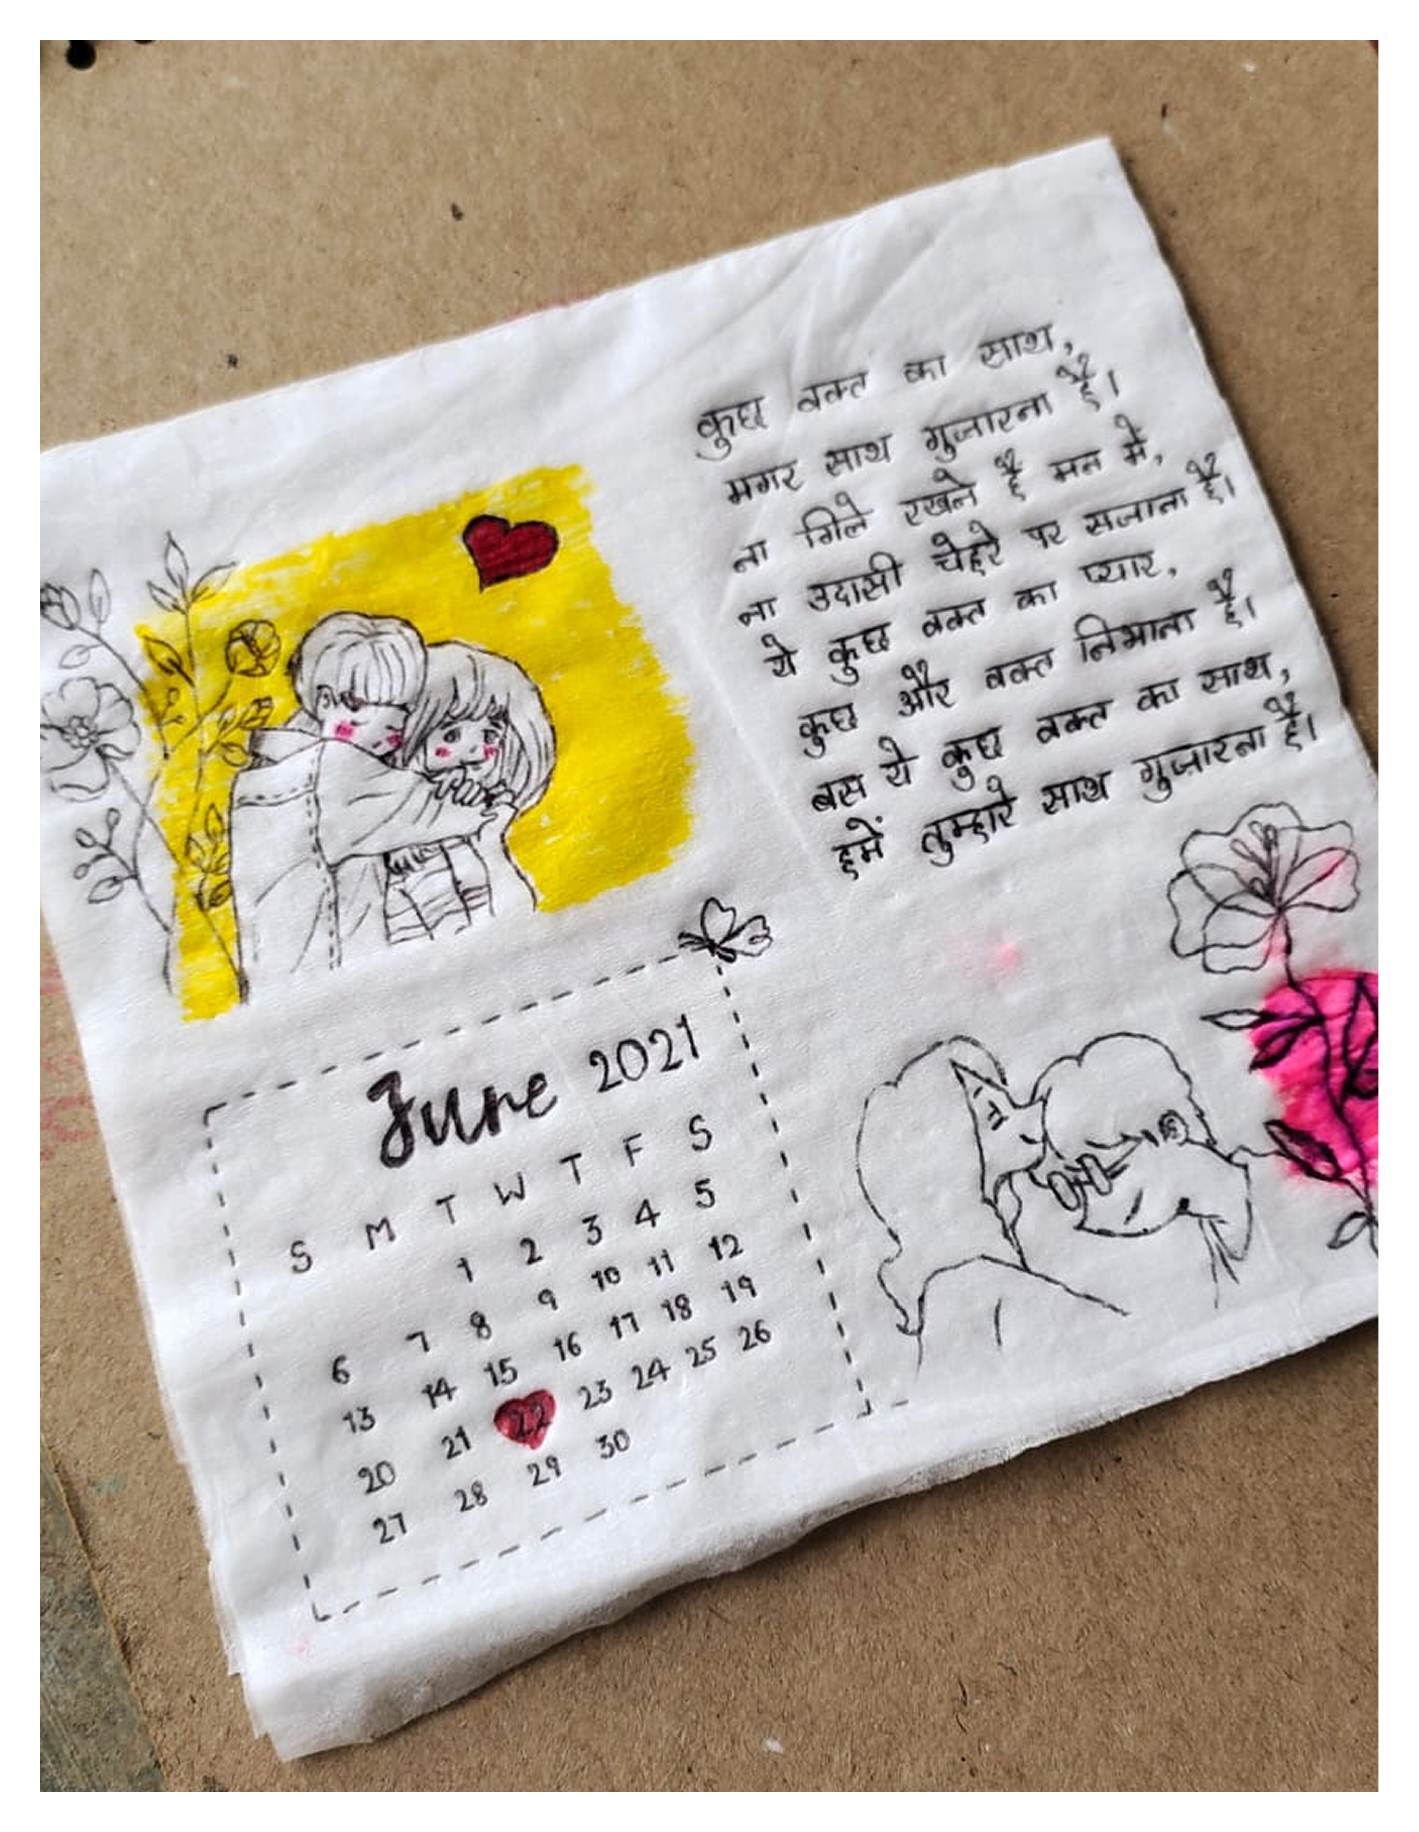 कुछ वक्त का साथ,
मगर साथ गुजारना है।
ना गिले रखने है मन मे,
ना उदासी चेहरे पर सजाना है।
ये कुछ वक्त का प्यार,
कुछ और वक्त निभाना है।
बस ये कुछ वक्त का साथ,
हमें तुम्हारे साथ गुज़ारना है।
June 2021
S M T W T F S
1 2 3 4 5
6 7 8 9 10 11 12
13 14 15 16 17 18 19
20 21 22 23 24 25 26
27 28 29 30